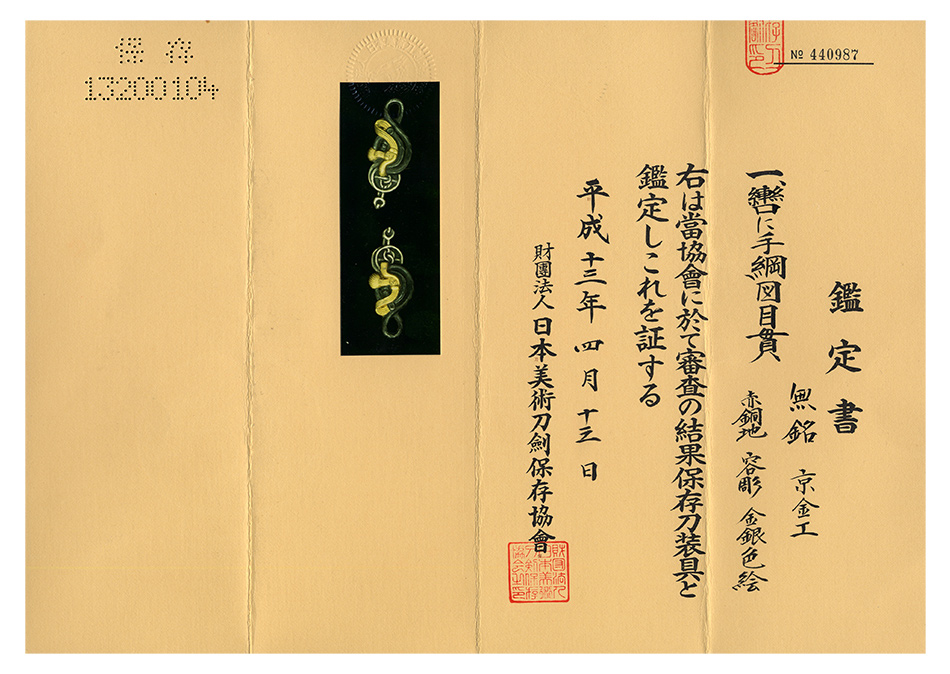 № 440987
鑑定書
一、轡に手綱図目貫
無銘 京金工
赤銅地 容彫 金銀色絵
右は當協會に於て審査の結果保存刀装具と
鑑定しこれを証する
平成十三年四月十三日
財團法人 日本美術刀劍保存協會
保存
13200104